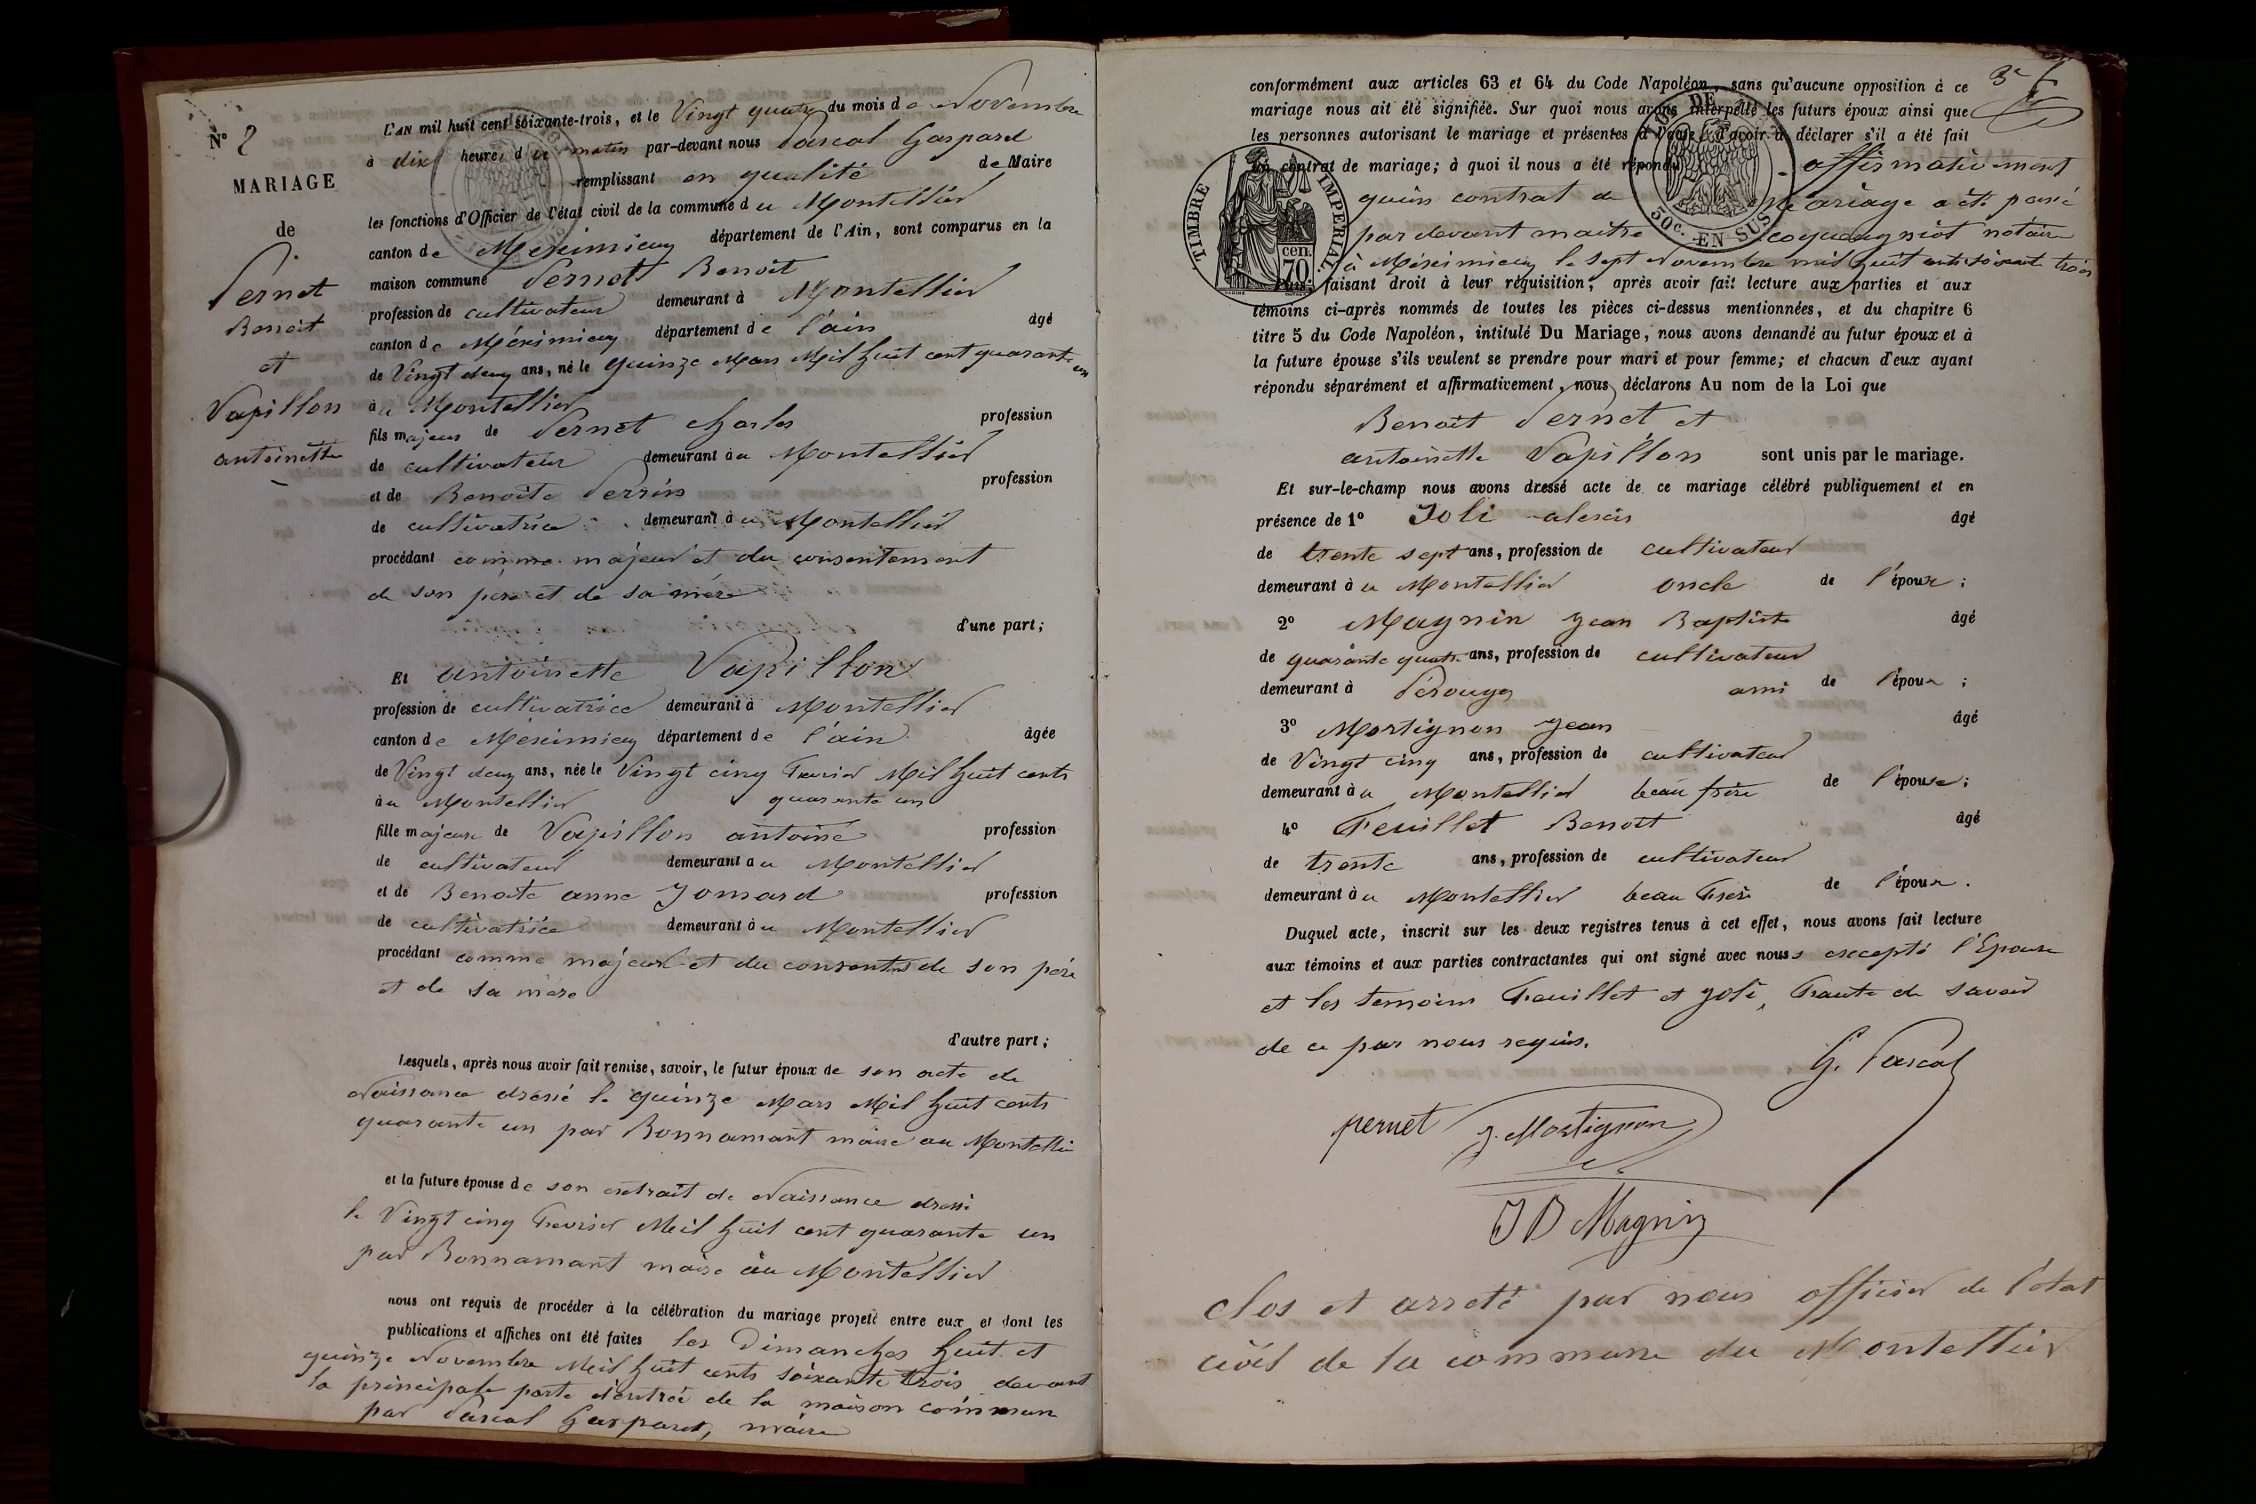 N° 2
MARIAGE
de
Pernet
Benoit
et
Vapillon
antoinette
L'AN mil huit cent soixante-trois, et le Vingt quatre du mois de Novembre
à dix heures du matin par-devant nous Pascal Gaspard
remplissant en qualité de Maire
les fonctions d'Officier de l'état civil de la commune du Montellier
canton de Meximieux département de l'Ain, sont comparus en la
maison commune Pernet Benoit
profession de cultivateur demeurant à Montellier
canton de Méximieux département de l'ain âgé
de Vingt deux ans, né le quinze Mars Mil huit cent quarante un
au Montellier
fils majeur de Pernet charles profession
de cultivateur demeurant au Montellier
et de Benoite Perrin profession
de cultivatrice demeurant au Montellier
procédant comme majeur et du consentement
de son père et de sa mère
d'une part;
Et antoinette Vapillon
profession de cultivatrice demeurant à Montellier
canton de Méximieux département de l'ain âgée
de Vingt deux ans, née le Vingt cinq Fevrier Mil huit cents
au Montellier quarante un
fille majeure de Vapillon antoine profession
de cultivateur demeurant au Montellier
et de Benoite anne Jomard profession
de cultivatrice demeurant au Montellier
procédant comme majeure et du consentnt de son père
et de sa mère
d'autre part;
Lesquels, après nous avoir fait remise, savoir, le futur époux de son acte de
Naissance dressé le quinze Mars Mil huit cents
quarante un par Bonnamant maire au Montellier
et la future épouse de son extrait de Naissance dressé
le Vingt cinq Fevrier Mil huit cent quarante un
par Bonnamant maire au Montellier
nous ont requis de procéder à la célébration du mariage projeté entre eux et dont les
publications et affiches ont été faites les Dimanches huit et
quinze Novembre Mil huit cents soixante trois devant
la principale porte d'entrée de la maison commune
par Pascal Gaspard, maire
3e
conformément aux articles 63 et 64 du Code Napoléon, sans qu'aucune opposition à ce
mariage nous ait été signifiée. Sur quoi nous avons interpellé les futurs époux ainsi que
les personnes autorisant le mariage et présentes à l'acte, d'avoir à déclarer s'il a été fait
un contrat de mariage; à quoi il nous a été répondu affirmativement
quun contrat de Mariage a été passé
par devant maitre notaire
à Méximieux le sept Novembre mil huit cent soixante trois
Puis, faisant droit à leur réquisition, après avoir fait lecture aux parties et aux
témoins ci-après nommés de toutes les pièces ci-dessus mentionnées, et du chapitre 6
titre 5 du Code Napoléon, intitulé Du Mariage, nous avons demandé au futur époux et à
la future épouse s'ils veulent se prendre pour mari et pour femme; et chacun d'eux ayant
répondu séparément et affirmativement, nous déclarons Au nom de la Loi que
Benoit Pernet et
antoinette Vapillon sont unis par le mariage.
Et sur-le-champ nous avons dressé acte de ce mariage célébré publiquement et en
présence de 1° Joli alexis âgé
de trente sept ans, profession de cultivateur
demeurant au Montellier oncle de l'épouse;
2° Magnin Jean Baptiste âgé
de quarante quatre ans, profession de cultivateur
demeurant à Pérouges ami de l'époux;
3° Mortignon Jean âgé
de Vingt cinq ans, profession de cultivateur
demeurant au Montellier beau frère de l'épouse;
4° Feuillet Benoit âgé
de trente ans, profession de cultivateur
demeurant au Montellier beau Frère de l'époux.
Duquel acte, inscrit sur les deux registres tenus à cet effet, nous avons fait lecture
aux témoins et aux parties contractantes qui ont signé avec nous excepté l'Epouse
et les temoins Feuillet et Joli, Fraute de savoir
de ce par nous requis.
G. Pascal
pernet J. Mortignon
J B Magnin
Clos et arreté par nous officier de l'état
civil de la commune du Montellier
TIMBRE IMPERIAL
70 cen.
50c. EN SUS